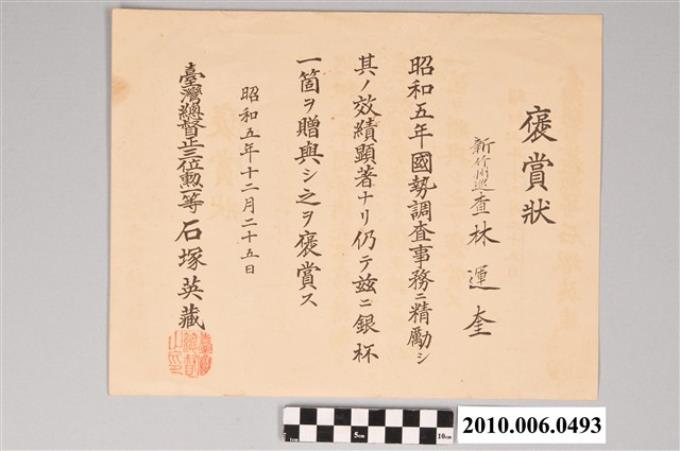 褒賞狀
新竹州巡查 林運奎
昭和五年國勢調查事務ニ精勵シ
其ノ效績顯著ナリ仍テ茲ニ銀杯
一箇ヲ贈與シ之ヲ褒賞ス
昭和五年十二月二十五日
臺灣總督正三位勳一等 石塚英藏
5cm
10cm
2010.006.0493